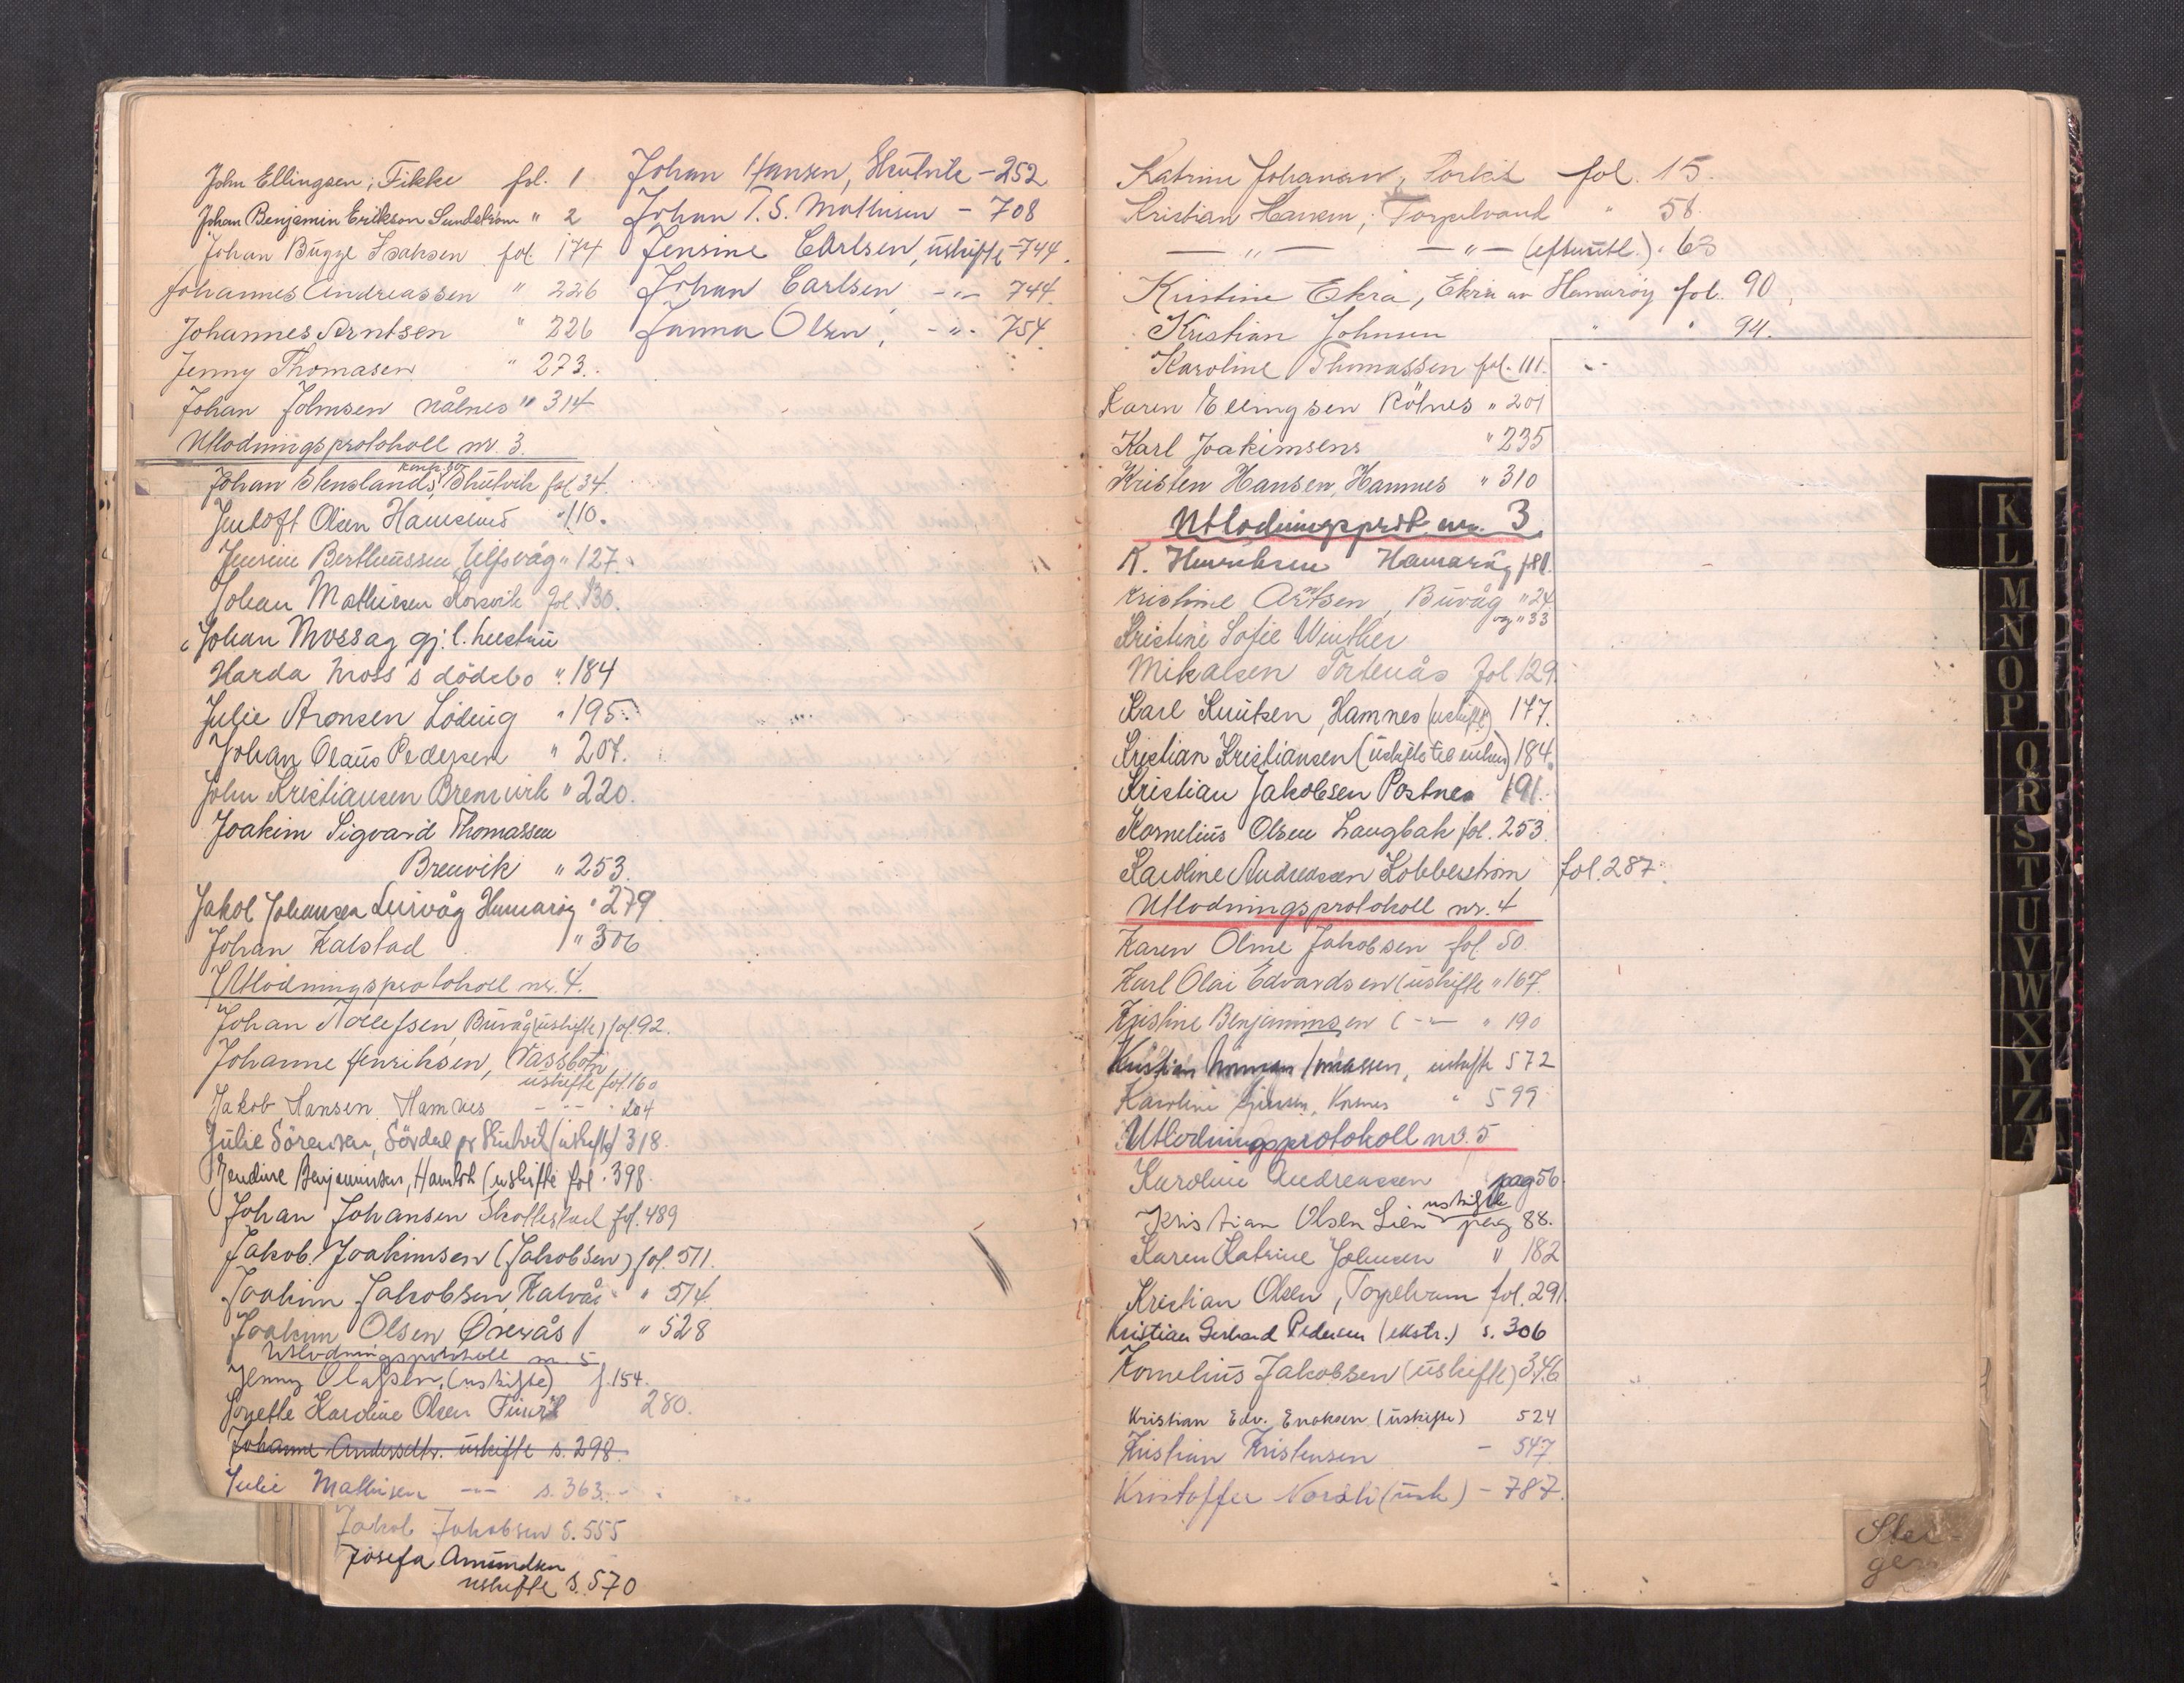 John Ellingsen; Fikke fol. 1
Johan Benjamin Erikson Sundström " 2
Johan Bugge Isaksen fol. 174
Johannes Andreassen " 226
Johannes Arntsen " 226
Jenny Thomasen " 273.
Johan Johnsen Nålnes " 314
Utlodningsprotokoll nr. 3.
Johan Stenslands, konk.bo Skutvik fol. 34.
Jentoft Olsen Hamsund " 110.
Jensine Bertheussen Ulfsvåg " 127.
Johan Mathisen Korsvik fol. 130.
Johan Mossag gj. l. hustru
Harda Moss's dödsbo " 184
Julie Aronsen Löding " 195.
Johan Olaus Pedersen " 207.
John Kristiansen Brennvik " 220.
Joakim Sigvard Thomassen
Brenvik " 253.
Jakob Johansen Leirvåg Hamarøy " 279
Johan Kalstad " 306
Utlodningsprotokoll nr. 4.
Johan Tollefsen, Buvåg (uskifte) fol. 92.
Johanne Henriksen, Vassbotn,
uskifte fol. 160
Jakob Hansen Hamnes - " - 204
Julie Sörensen, Sördal pr Skutvik (uskifte) 318.
Jendine Benjaminsen, Hambok (uskifte fol. 398.
Johan Johansen Skottestad fol. 489
Jakob Joakimsen (Jakobsen) fol. 511.
Joakim Jakobsen Kalvåg " 514
Joakim Olsen Överås " 528
Utlodningsprotokoll nr. 5
Jenny Olafsen, (uskifte) f. 154.
Josefie Karoline Olsen 280.
Johanne Andersdtr. uskifte s. 298.
Julie Mathisen - " - s. 363.
Jakob Jakobsen s. 555
Josefa Amundsen
uskifte s. 570
Johan Hansen, Skutvik - 252
Johan T. S. Mathisen - 708
Jensine Carlsen, uskifte - 744.
Johan Carlsen - " - 744.
Janna Olsen, - " - 754.
Katrine Johansen, fol. 15.
Kristian Hansen; Torpelvand " 58.
- " - - " - (eftutl.) " 63
Kristine Ekra, Ekra av Hamarøy fol. 90
Kristian Johnsen " " 94.
Karoline Thomassen fol. 111.
Karen Ellingsen Rötnes " 201
Karl Joakimsens " 235
Kristen Hansen, Hamnes " 310
Utlodningsprot. nr. 3.
K. Henriksen Hamarøy f 81.
Kristine Arntsen, Buvåg " 24
og " 33
Kristine Sofie Winther
Mikalsen Tortenås fol 129.
Karl Knutsen, Hamnes (uskifte) 177.
Kristian Kristiansen (uskifte til enken) 184.
Kristian Jakobsen Postnes 191.
Kornelius Olsen Langbak fol. 253.
Karoline Andreassen Kobberström fol. 287.
Utlodningsprotokoll nr. 4
Karen Oline Jakobsen fol. 50.
Karl Olai Edvardsen (uskifte " 167.
Kristine Benjaminsen ( - " - " 190
Kristian Tomassen, uskifte 572
Karoline " 599
Utlodningsprotokoll nr. 5
Karoline Andreassen pag 56.
Kristian Olsen Lien uskifte pag 88.
Karen Katrine Johnsen " 182
Kristian Olsen, Torpelvann fol. 291.
Kristian Gerhard Pedersen (ekstr.) s. 306
Kornelius Jakobsen (uskifte) 346
Kristian Edv. Enoksen (uskifte) 524
Kristian Kristensen - 547
Kristoffer Norsli (usk) - 787.
K
L
M
N
O
P
Q
R
S
T
U
V
W
X
Y
Z
A
Stei-
gen